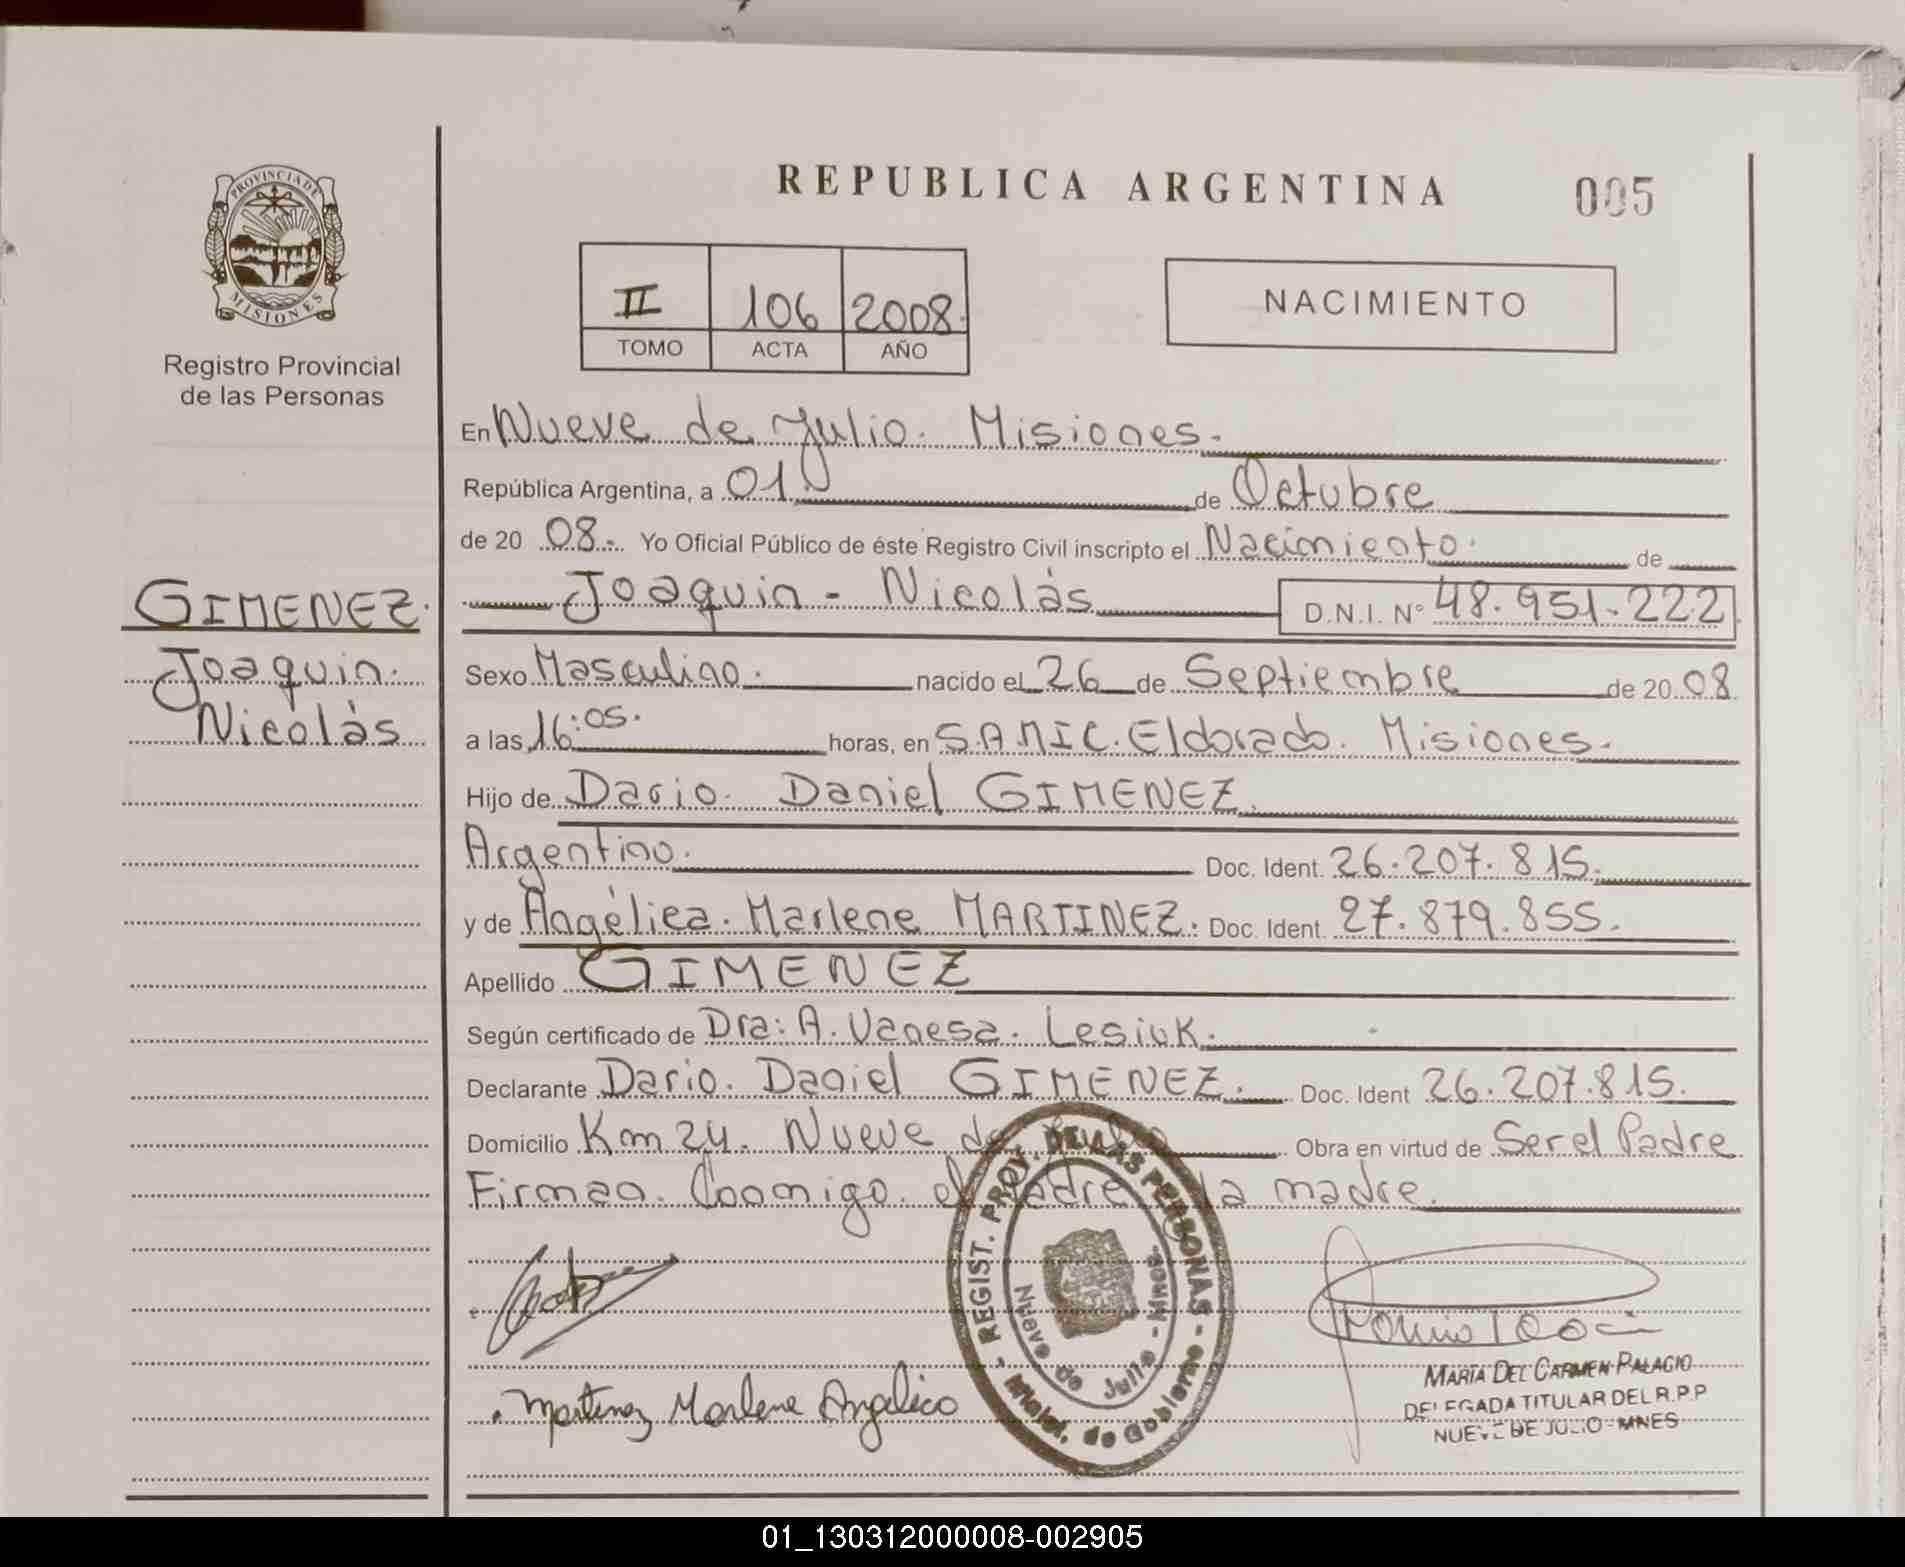 REPUBLICA ARGENTINA
005
PROVINCIA DE
MISIONES
Registro Provincial
de las Personas
II 106 2008.
TOMO ACTA AÑO
NACIMIENTO
En Nueve de Julio. Misiones.
República Argentina, a 01. de Octubre
de 20 08. Yo Oficial Público de éste Registro Civil inscripto el Nacimiento. de
Joaquin - Nicolás D.N.I. Nº 48.951.222
GIMENEZ.
Joaquin.
Nicolás
Sexo Masculino. nacido el 26 de Septiembre de 20 08
a las 16:05. horas, en S.A.M.I.C. Eldorado. Misiones.
Hijo de Dario. Daniel GIMENEZ.
Argentino. Doc. Ident. 26.207.815.
y de Angélica. Marlene MARTINEZ. Doc. Ident. 27.879.855.
Apellido GIMENEZ
Según certificado de Dra: A. Vanesa. Lesiuk.
Declarante Dario. Daniel GIMENEZ. Doc. Ident 26.207.815.
Domicilio Km 24. Nueve de Julio Obra en virtud de Ser el Padre
Firman. Conmigo. el Padre la madre.
- REGIST. PROV. DE LAS PERSONAS -
Minist. de Gobierno
Nueve de Julio - Mnes.
Martinez Marlene Angelica
MARIA DEL CARMEN PALACIO
DELEGADA TITULAR DEL R.P.P
NUEVE DE JULIO - MNES
01_130312000008-002905